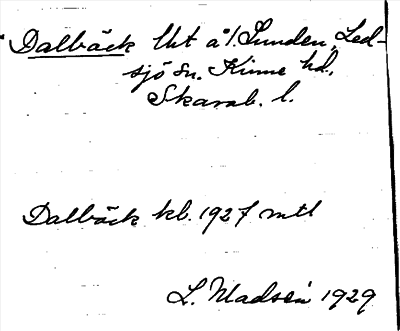 Dalbäck lht å 1. Sunden, Led-
sjö sn. Kinne hd,
Skarab. l.
Dalbäck kb. 1927 mtl
L. Madsén 1929